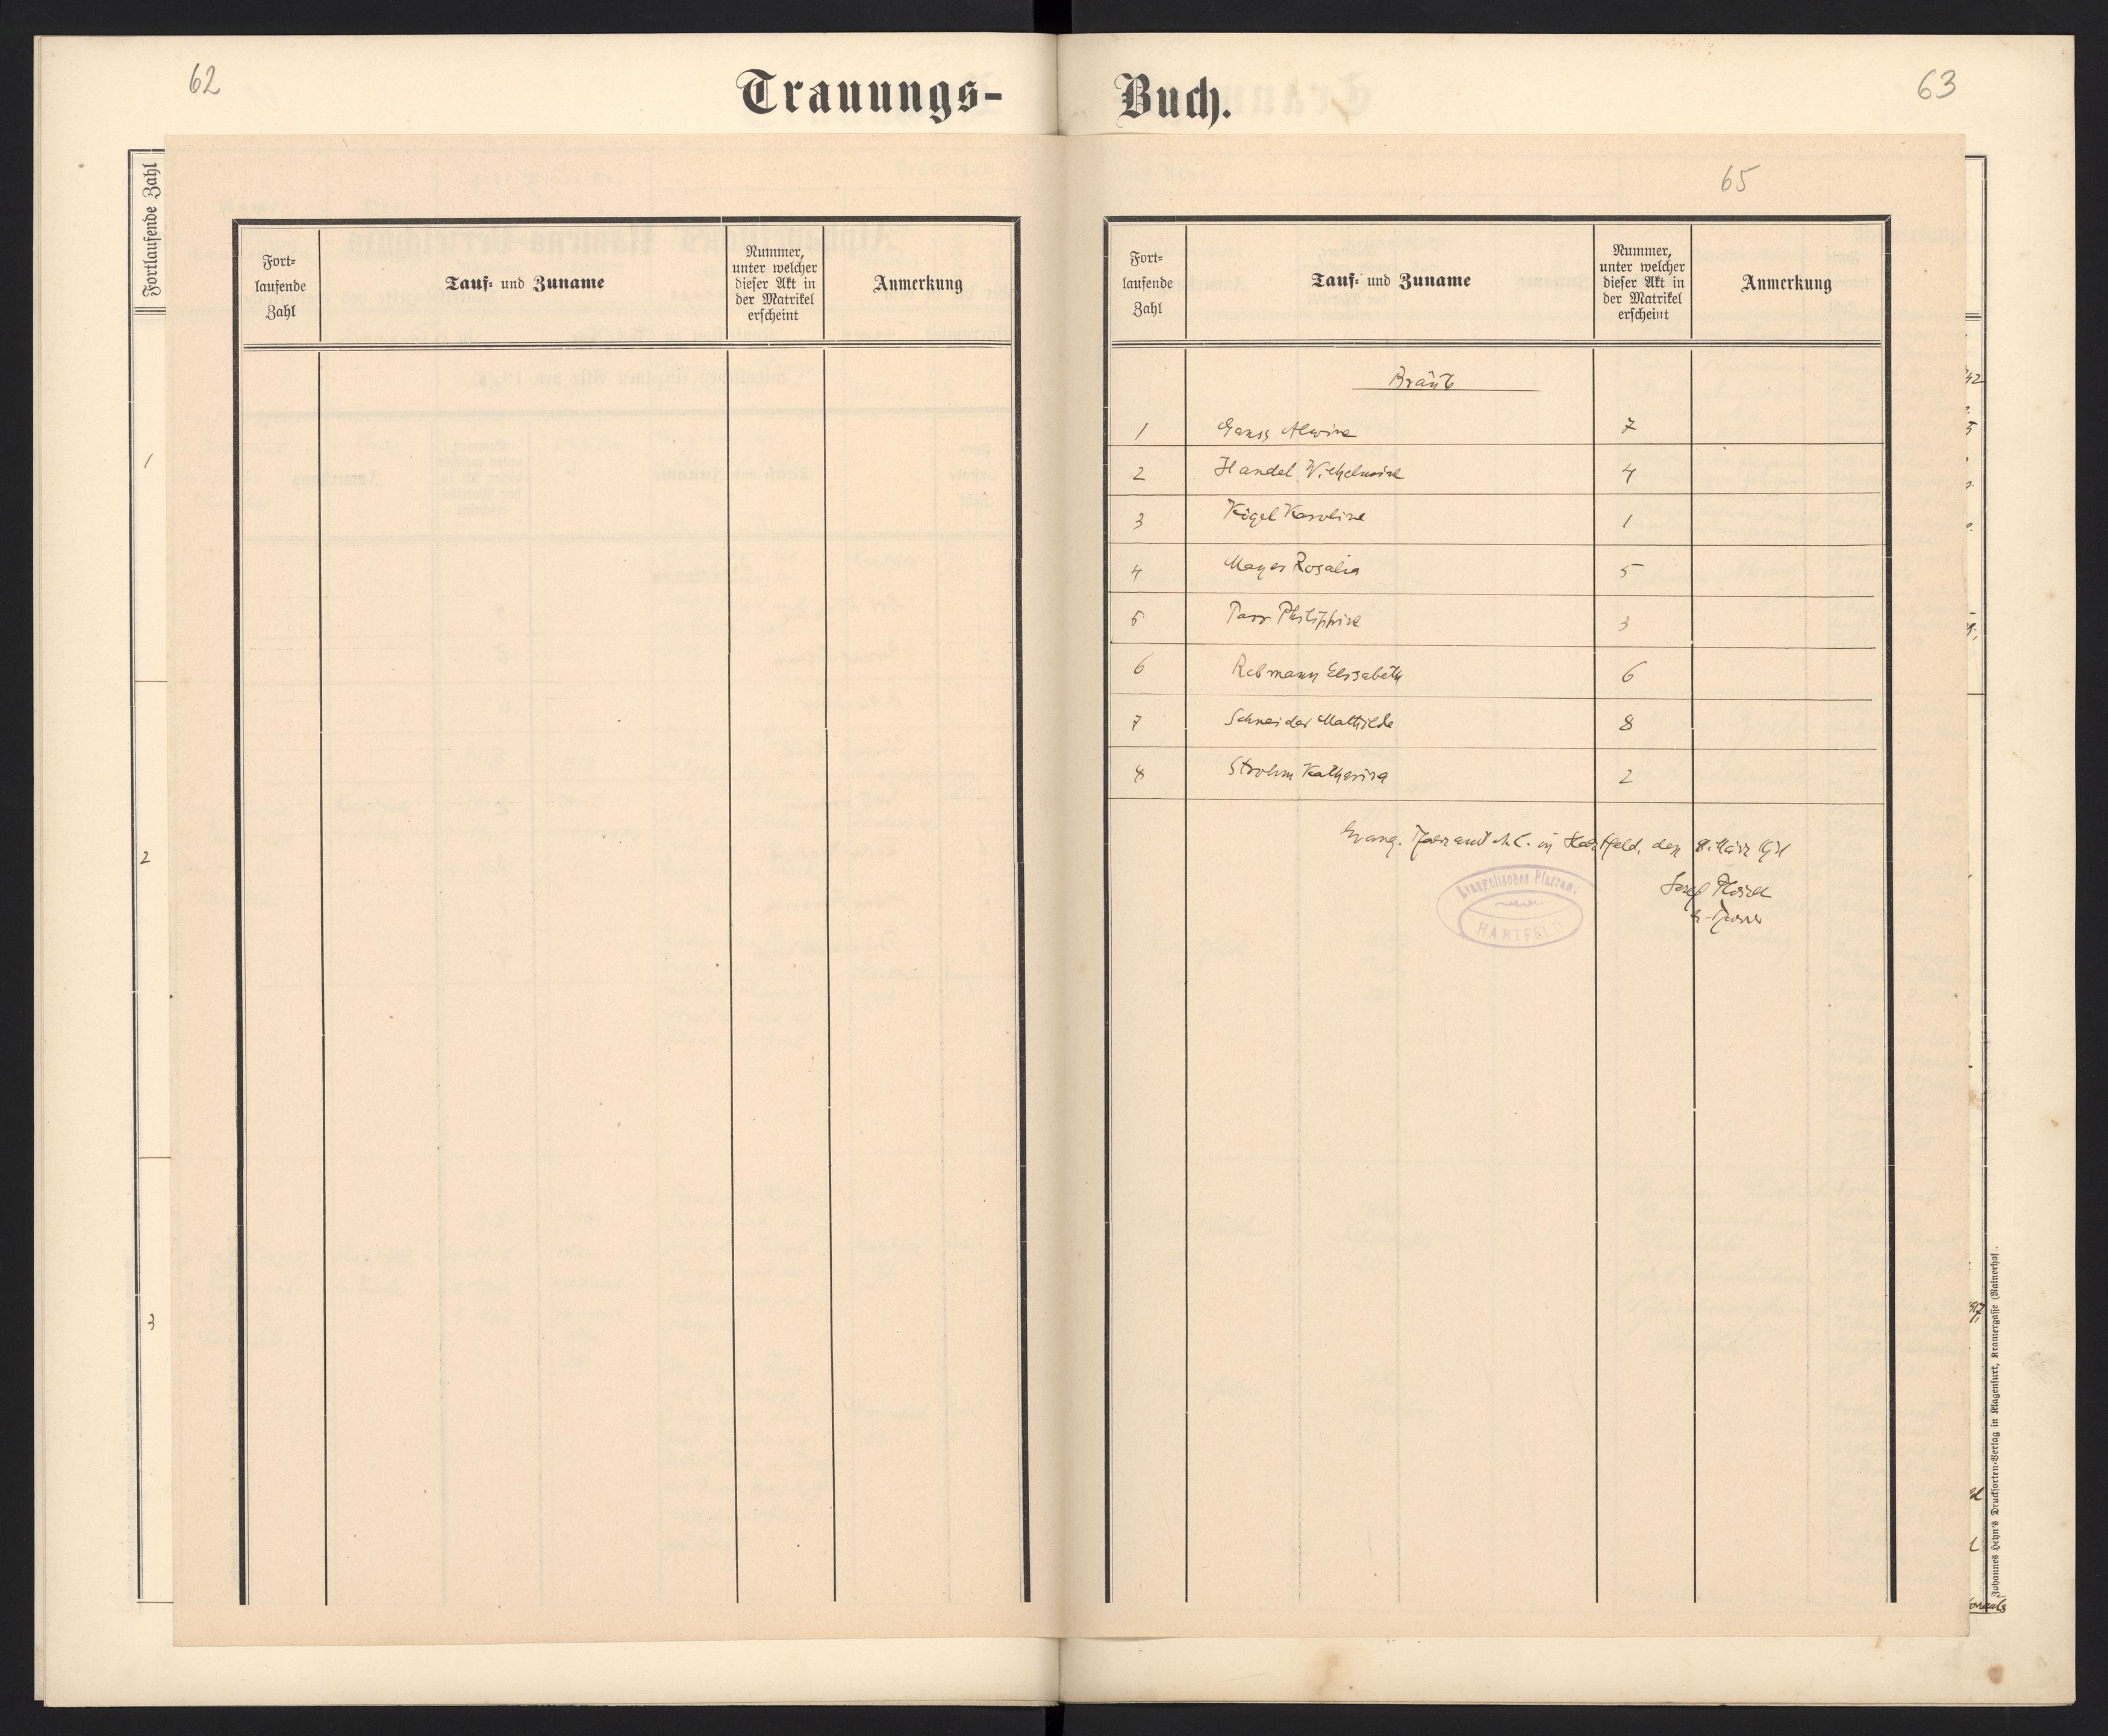 62
Trauungs-
Buch.
63
65
Fortlaufende Zahl
1
2
3
Fort-
laufende
Zahl
Tauf- und Zuname
Nummer,
unter welcher
dieser Akt in
der Matrikel
erscheint
Anmerkung
Fort-
laufende
Zahl
Tauf- und Zuname
Nummer,
unter welcher
dieser Akt in
der Matrikel
erscheint
Anmerkung
Bräut
1 Gauss Alwine 7
2 Handel Wilhelmine 4
3 Kögel Karoline 1
4 Mayer Rosalia 5
5 Parr Philippine 3
6 Rebmann Elisabeth 6
7 Schneider Mathilde 8
8 Strohm Katharina 2
Evang. Pfarramt A.C. in Hartfeld, den 8. März
Josef
Pfarrer
Evangelisches Pfarram.
HARTFELD
Johannes Heyn's Drucksorten-Verlag in Klagenfurt, Kramergasse (Rainerhof).